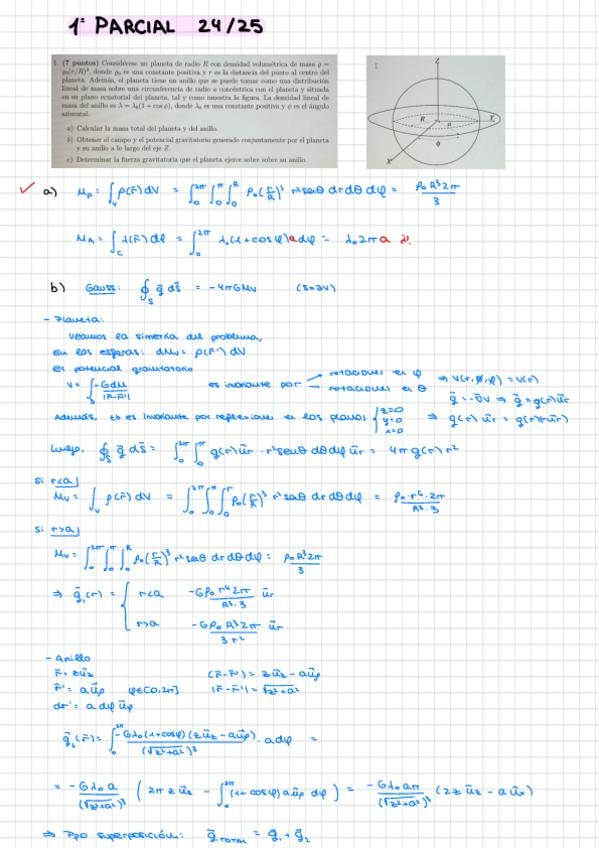 1º PARCIAL 24/25
1. (7 puntos) Considérese un planeta de radio R con densidad volumétrica de masa ρ =
ρ₀(r/R)³, donde ρ₀ es una constante positiva y r es la distancia del punto al centro del
planeta. Además, el planeta tiene un anillo que se puede tomar como una distribución
lineal de masa sobre una circunferencia de radio a concéntrica con el planeta y situada
en su plano ecuatorial del planeta, tal y como muestra la figura. La densidad lineal de
masa del anillo es λ = λ₀(1 + cos φ), donde λ₀ es una constante positiva y φ es el ángulo
azimutal.
a) Calcular la masa total del planeta y del anillo.
b) Obtener el campo y el potencial gravitatorio generado conjuntamente por el planeta
y su anillo a lo largo del eje Z.
c) Determinar la fuerza gravitatoria que el planeta ejerce sobre su anillo.
Z
R
a
Y
φ
X
✓ a) Mp = ∫_V ρ(r̄) dV = ∫₀^2π ∫₀^π ∫₀^R ρ₀(r/R)³ r² senθ dr dθ dφ = ρ₀R³2π/3
M_A = ∫_C λ(r̄) dφ = ∫₀^2π λ₀(1+cosφ) a dφ = λ₀2πa
b) Gauss: ∮_S ḡ ds̄ = -4πGMv (S=∂V)
- Planeta:
Veamos la simetría del problema,
en las esferas: dMv = ρ(r̄') dV
el potencial gravitatorio
V = ∫ -GdM/|r̄-r̄'| es invariante por → rotaciones en φ → rotaciones en θ ⇒ V(r,θ,φ) = V(r)
ḡ = -∇V ⇒ ḡ = g(r)ūr
Además, tb es invariante por reflexiones en los planos { z=0 y=0 x=0 ⇒ g(r) ūr = g(r)(-ūr)
luego, ∮_S ḡ ds̄ = ∫₀^2π ∫₀^π g(r)ūr · r² senθ dθ dφ ūr = 4π g(r) r²
si r<a
Mv = ∫_V ρ(r̄) dV = ∫₀^2π ∫₀^π ∫₀^r ρ₀(r/R)³ r² senθ dr dθ dφ = ρ₀·r⁶·2π/R³·3
si r>a
Mv = ∫₀^2π ∫₀^π ∫₀^R ρ₀(r/R)³ r² senθ dr dθ dφ = ρ₀R³2π/3
⇒ ḡ₁(r) = { r<a -Gρ₀ r⁴ 2π/R³·3 ūr
r>a -Gρ₀ R³ 2π/3 r² ūr
- Anillo
r̄ = zūz (r̄-r̄') = zūz - aūρ
r̄' = aūρ φ∈[0,2π] |r̄-r̄'| = √(z²+a²)
dr' = a dφ ūφ
ḡ₂(r̄) = ∫₀^2π -Gλ₀(1+cosφ)(zūz - aūρ)/(√(z²+a²))³ · a dφ =
= -Gλ₀a/(√(z²+a²))³ (2πzūz - ∫₀^2π (1+cosφ) aūρ dφ) = -Gλ₀aπ/(√(z²+a²))³ (2zūz - aūx)
⇒ Ppo superposición: ḡ_TOTAL = ḡ₁ + ḡ₂